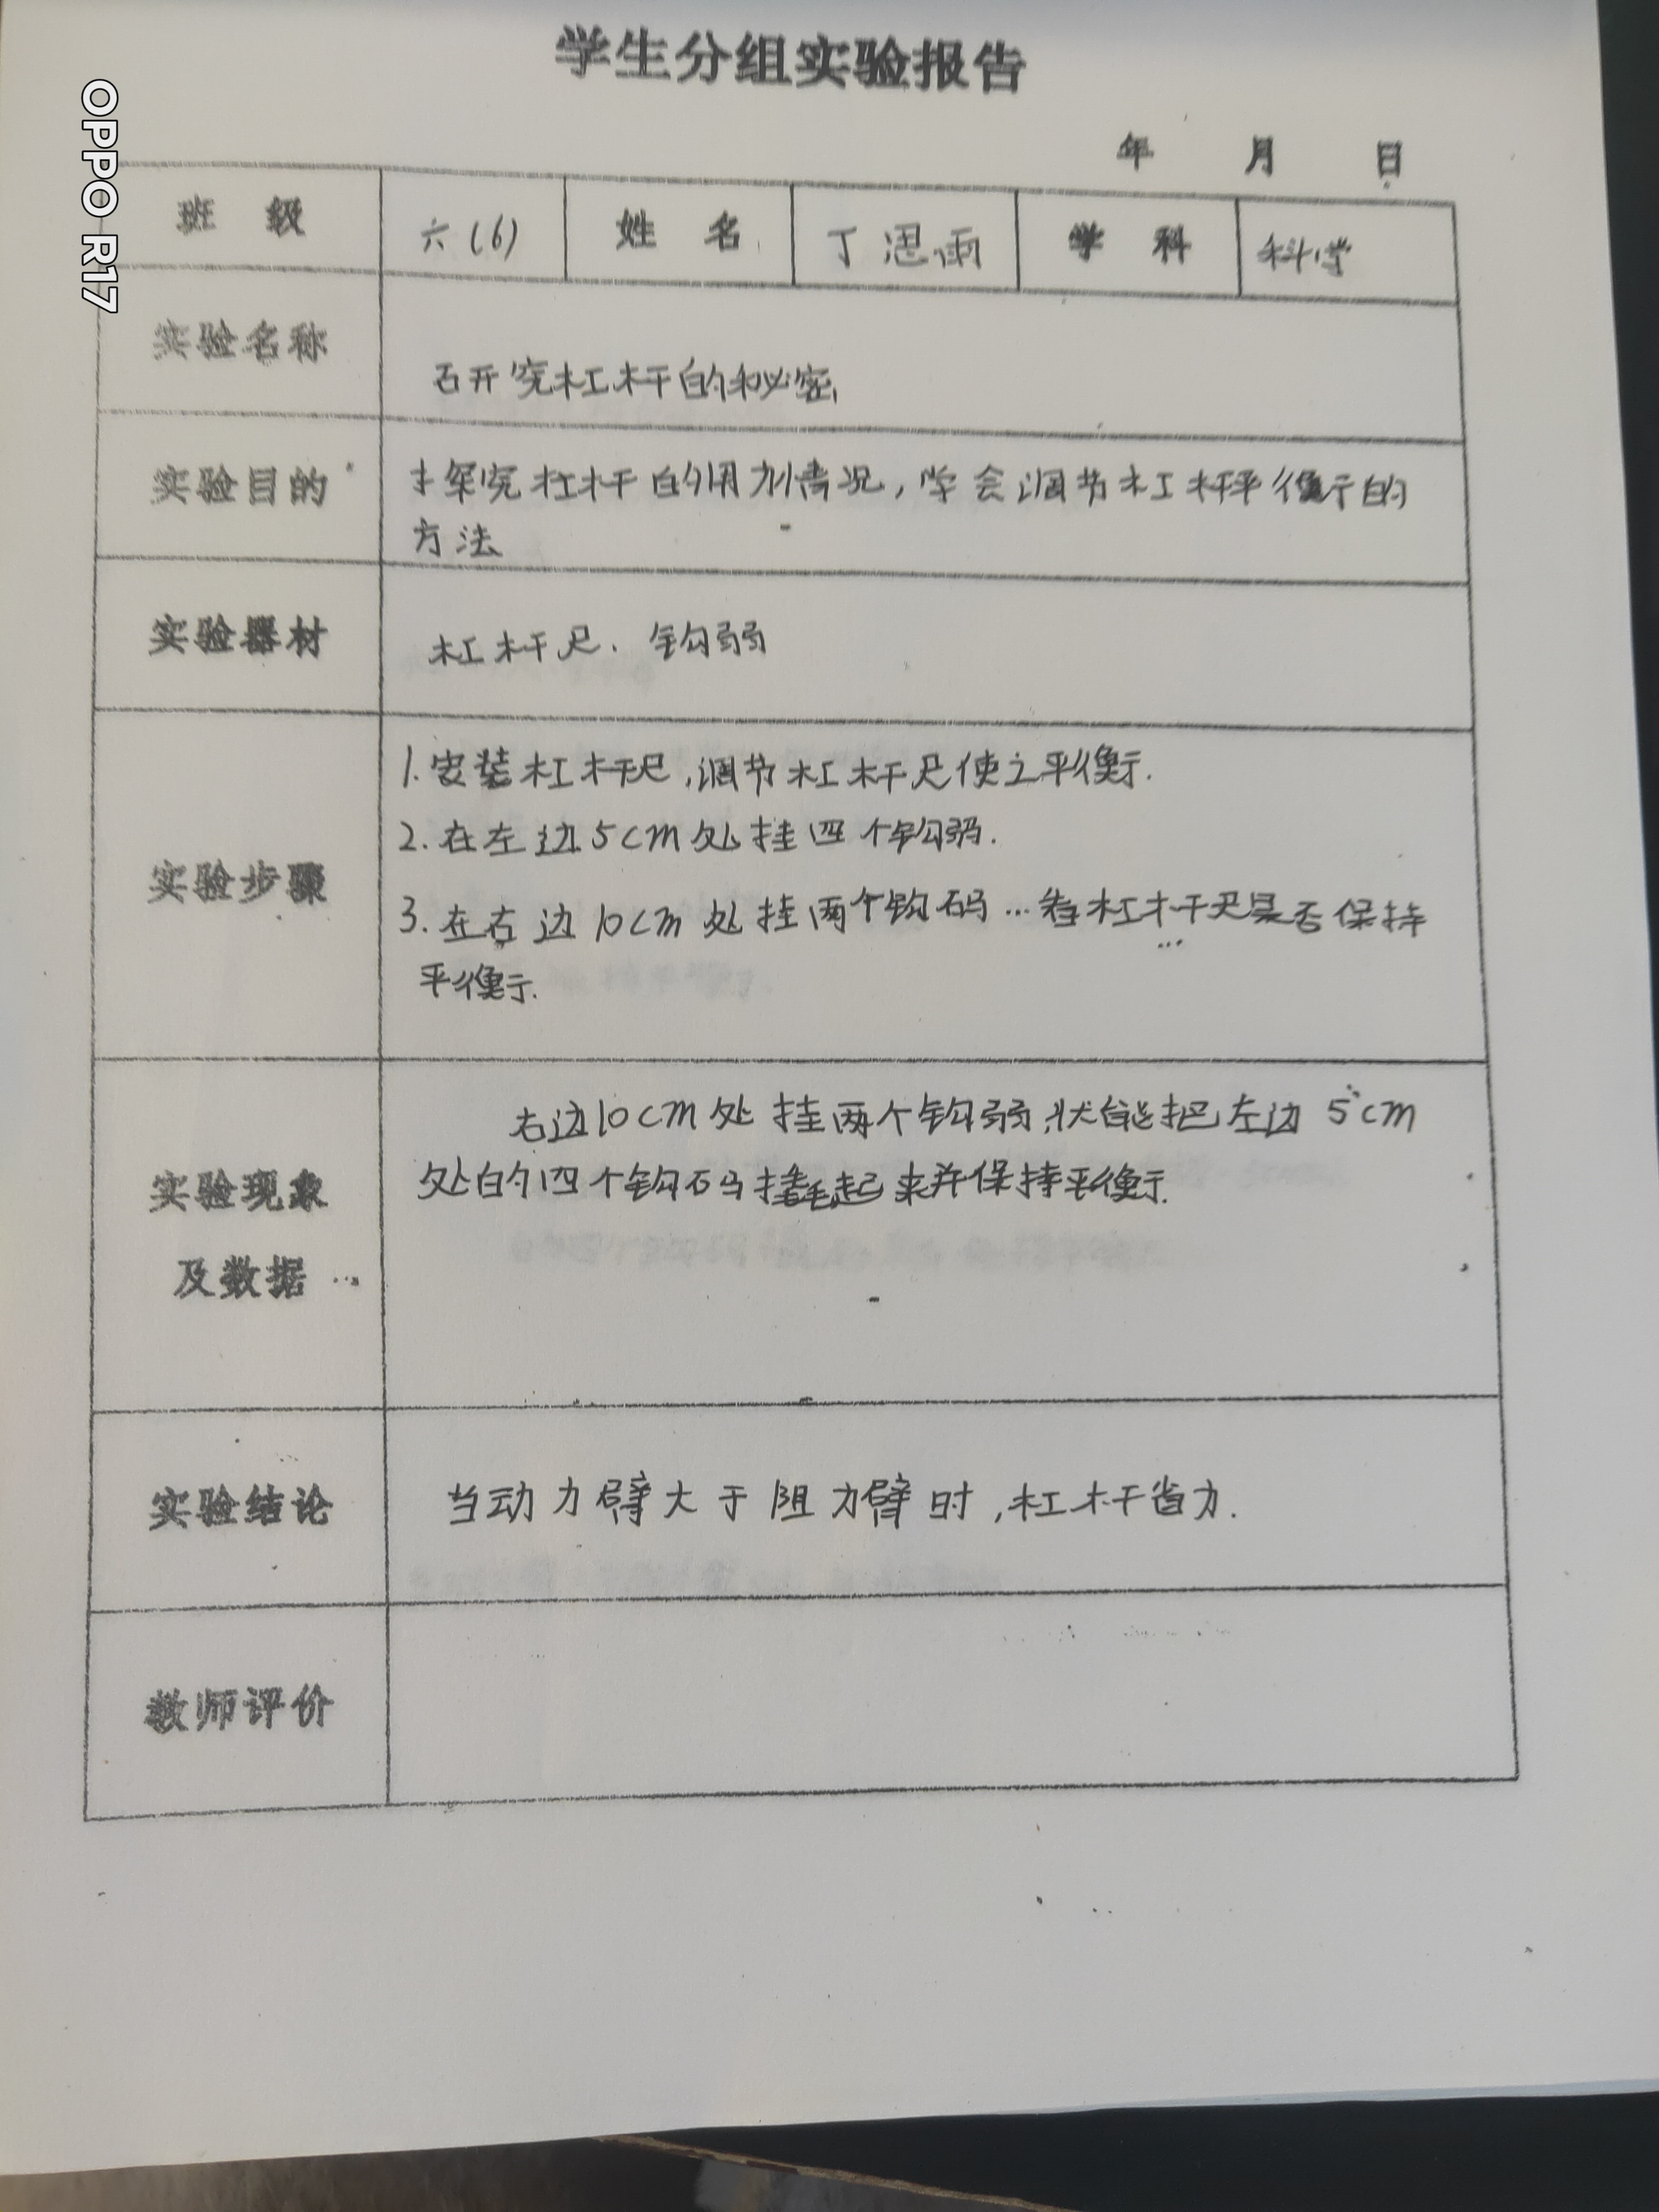 学生分组实验报告
年 月 日
班 级 六(6) 姓 名 丁思雨 学 科 科学
实验名称 研究杠杆的秘密
实验目的 探究杠杆的用力情况,学会调节杠杆平衡的
方法
实验器材 杠杆尺.钩弱
实验步骤
1.安装杠杆尺,调节杠杆尺使之平衡.
2.在左边5cm处挂四个钩弱.
3.在右边10cm处挂两个钩码…看杠杆尺是否保持
平衡.
实验现象
及数据
右边10cm处挂两个钩弱,就能把左边5cm
处的四个钩码撬起来并保持平衡.
实验结论 当动力臂大于阻力臂时,杠杆省力.
教师评价
OPPO R17